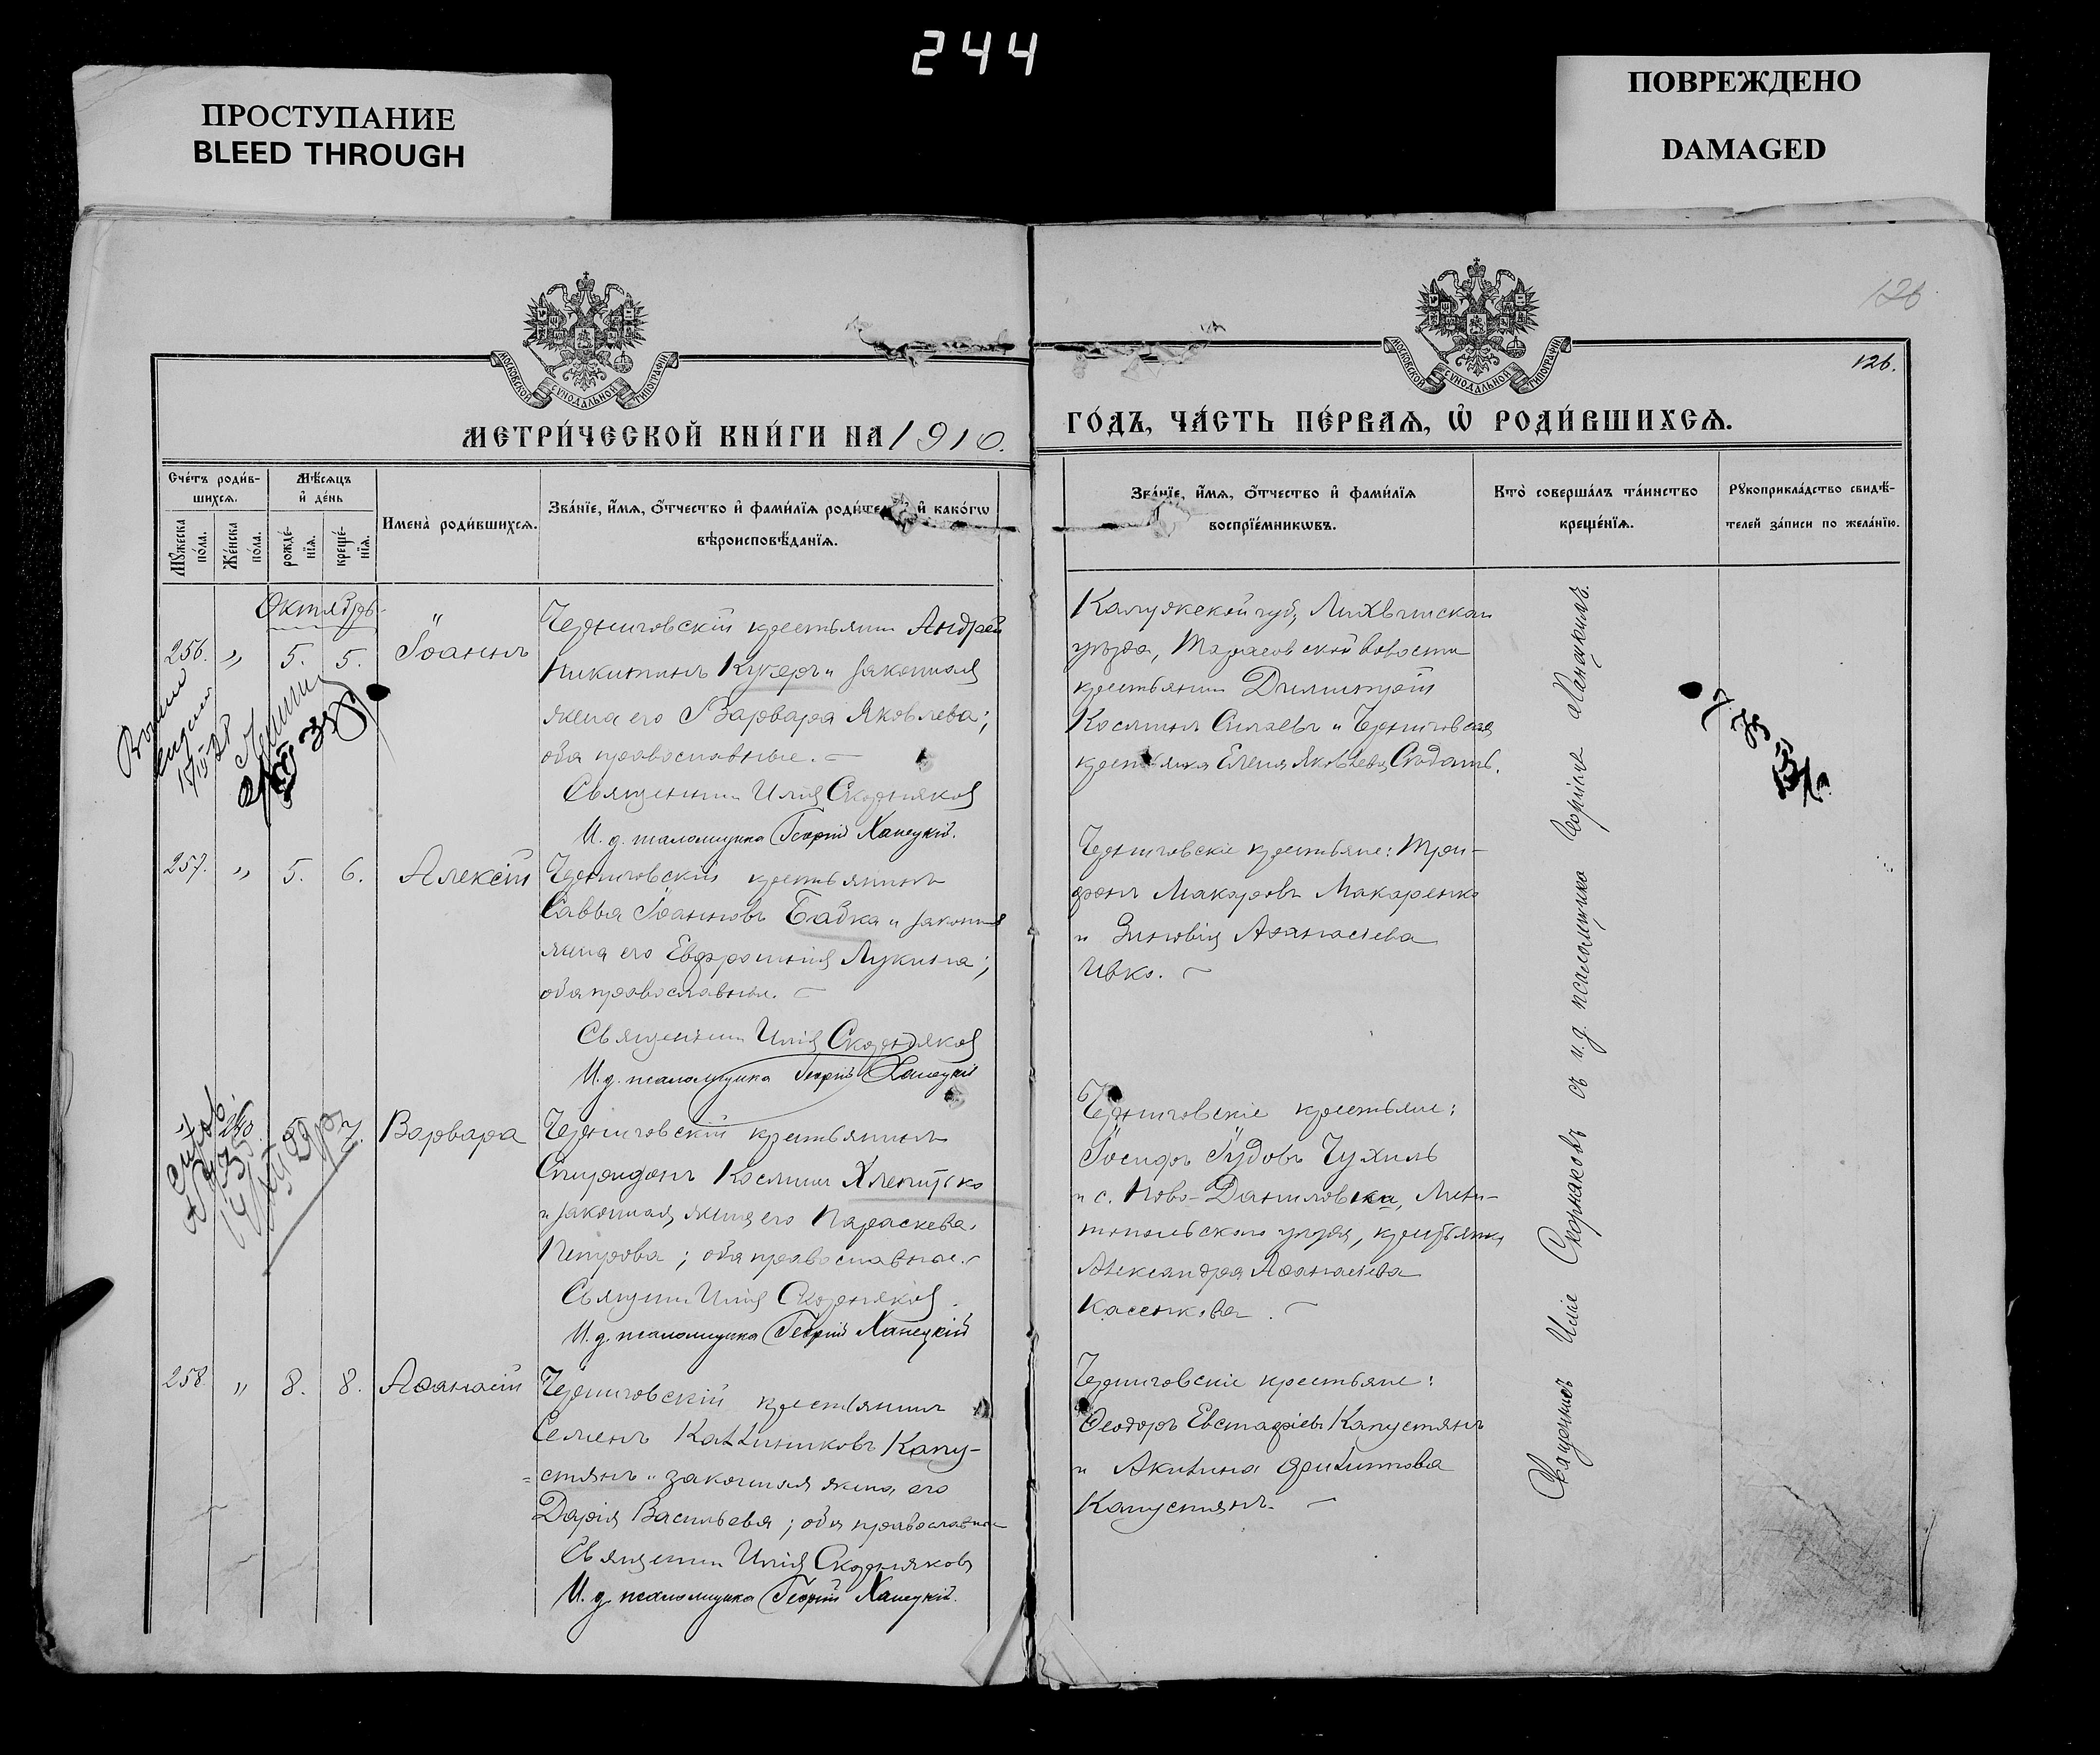 244
ПРОСТУПАНИЕ
BLEED THROUGH
ПОВРЕЖДЕНО
DAMAGED
126
126.
МОСКОВСКОЙ СУНОДАЛЬНОЙ ТИПОГРАФІИ
МОСКОВСКОЙ СУНОДАЛЬНОЙ ТИПОГРАФІИ
МЕТРИ́ЧЕСКОЙ КНИ́ГИ НА 1910.
ГО́ДЪ, ЧА́СТЬ ПЕ́РВАѦ, Ѡ҆ РОДИ́ВШИХСѦ.
Сче́тъ роди́в-
шихсѧ.
Мꙋжеска по́ла.
Же́нска по́ла.
Мѣ́сѧцъ
и҆ де́нь
рожде́-нїѧ.
креще́-нїѧ.
Имена̀ роди́вшихсѧ.
Зва́нїе, и҆́мѧ, ѻ҆́тчество и҆ фами́лїѧ роди́тел и҆ како́гѡ
вѣроисповѣ́данїѧ.
Зва́нїе, и҆́мѧ, ѻ҆́тчество и҆ фами́лїѧ
воспрїе́мникѡвъ.
Кто̀ соверша́лъ та́инство
креще́нїѧ.
Рꙋкоприкла́дство свидѣ́-
телей за́писи по жела́нїю.
Октябрь
256. " 5. 5. Іоаннъ
Черниговскій крестьянин Андрей
Никитинъ Кучеръ и законная
жена его Варвара Яковлева;
оба православные.
Священник Илія Скорняков
И. д. псаломщика Георгій Ханецкій.
Калужской губ, Лихвинскаго
уезда, Тарасовской волости
крестьянин Димитрій
Косминъ Силаевъ и Черниговская
крестьянка Елена Яковлева Солдатъ.
257. " 5. 6. Алексій
Черниговскій крестьянинъ
Савва Іоанновъ Бабка и законная
жена его Евфросинія Лукина;
оба православные.
Священник Илія Скорняков
И. д. псаломщика Георгій Ханецкій
Черниговскіе крестьяне: Три-
фонъ Макаровъ Макаренко
и Зиновія Аѳанасіева
Ивко.
7. Варвара
Черниговскій крестьянинъ
Спиридонъ Космин
и законная жена его Параскева
Петрова; оба православные.
Священник Илія Скорняков.
И. д. псаломщика Георгій Ханецкій
Черниговскіе крестьяне:
Іосифъ Іудовъ Чухиль
и с. Ново-Даниловки, Мели-
топольскаго уезда, крестьянка
Александра Аѳанасіева
Касенкова.
258. " 8. 8. Аѳанасій
Черниговскій крестьянинъ
Семенъ Каллиниковъ Капу-
=стянъ и законная жена его
Дарія Васильева; оба православные
Священник Илія Скорняковъ
И. д. псаломщика Георгій Ханецкій.
Черниговскіе крестьяне:
Ѳеодоръ Евстафіевъ Капустянъ
и Акилина Филиппова
Капустянъ.
Священникъ Илія Скорняковъ съ и. д. псаломщика Георгіемъ Ханецкимъ.